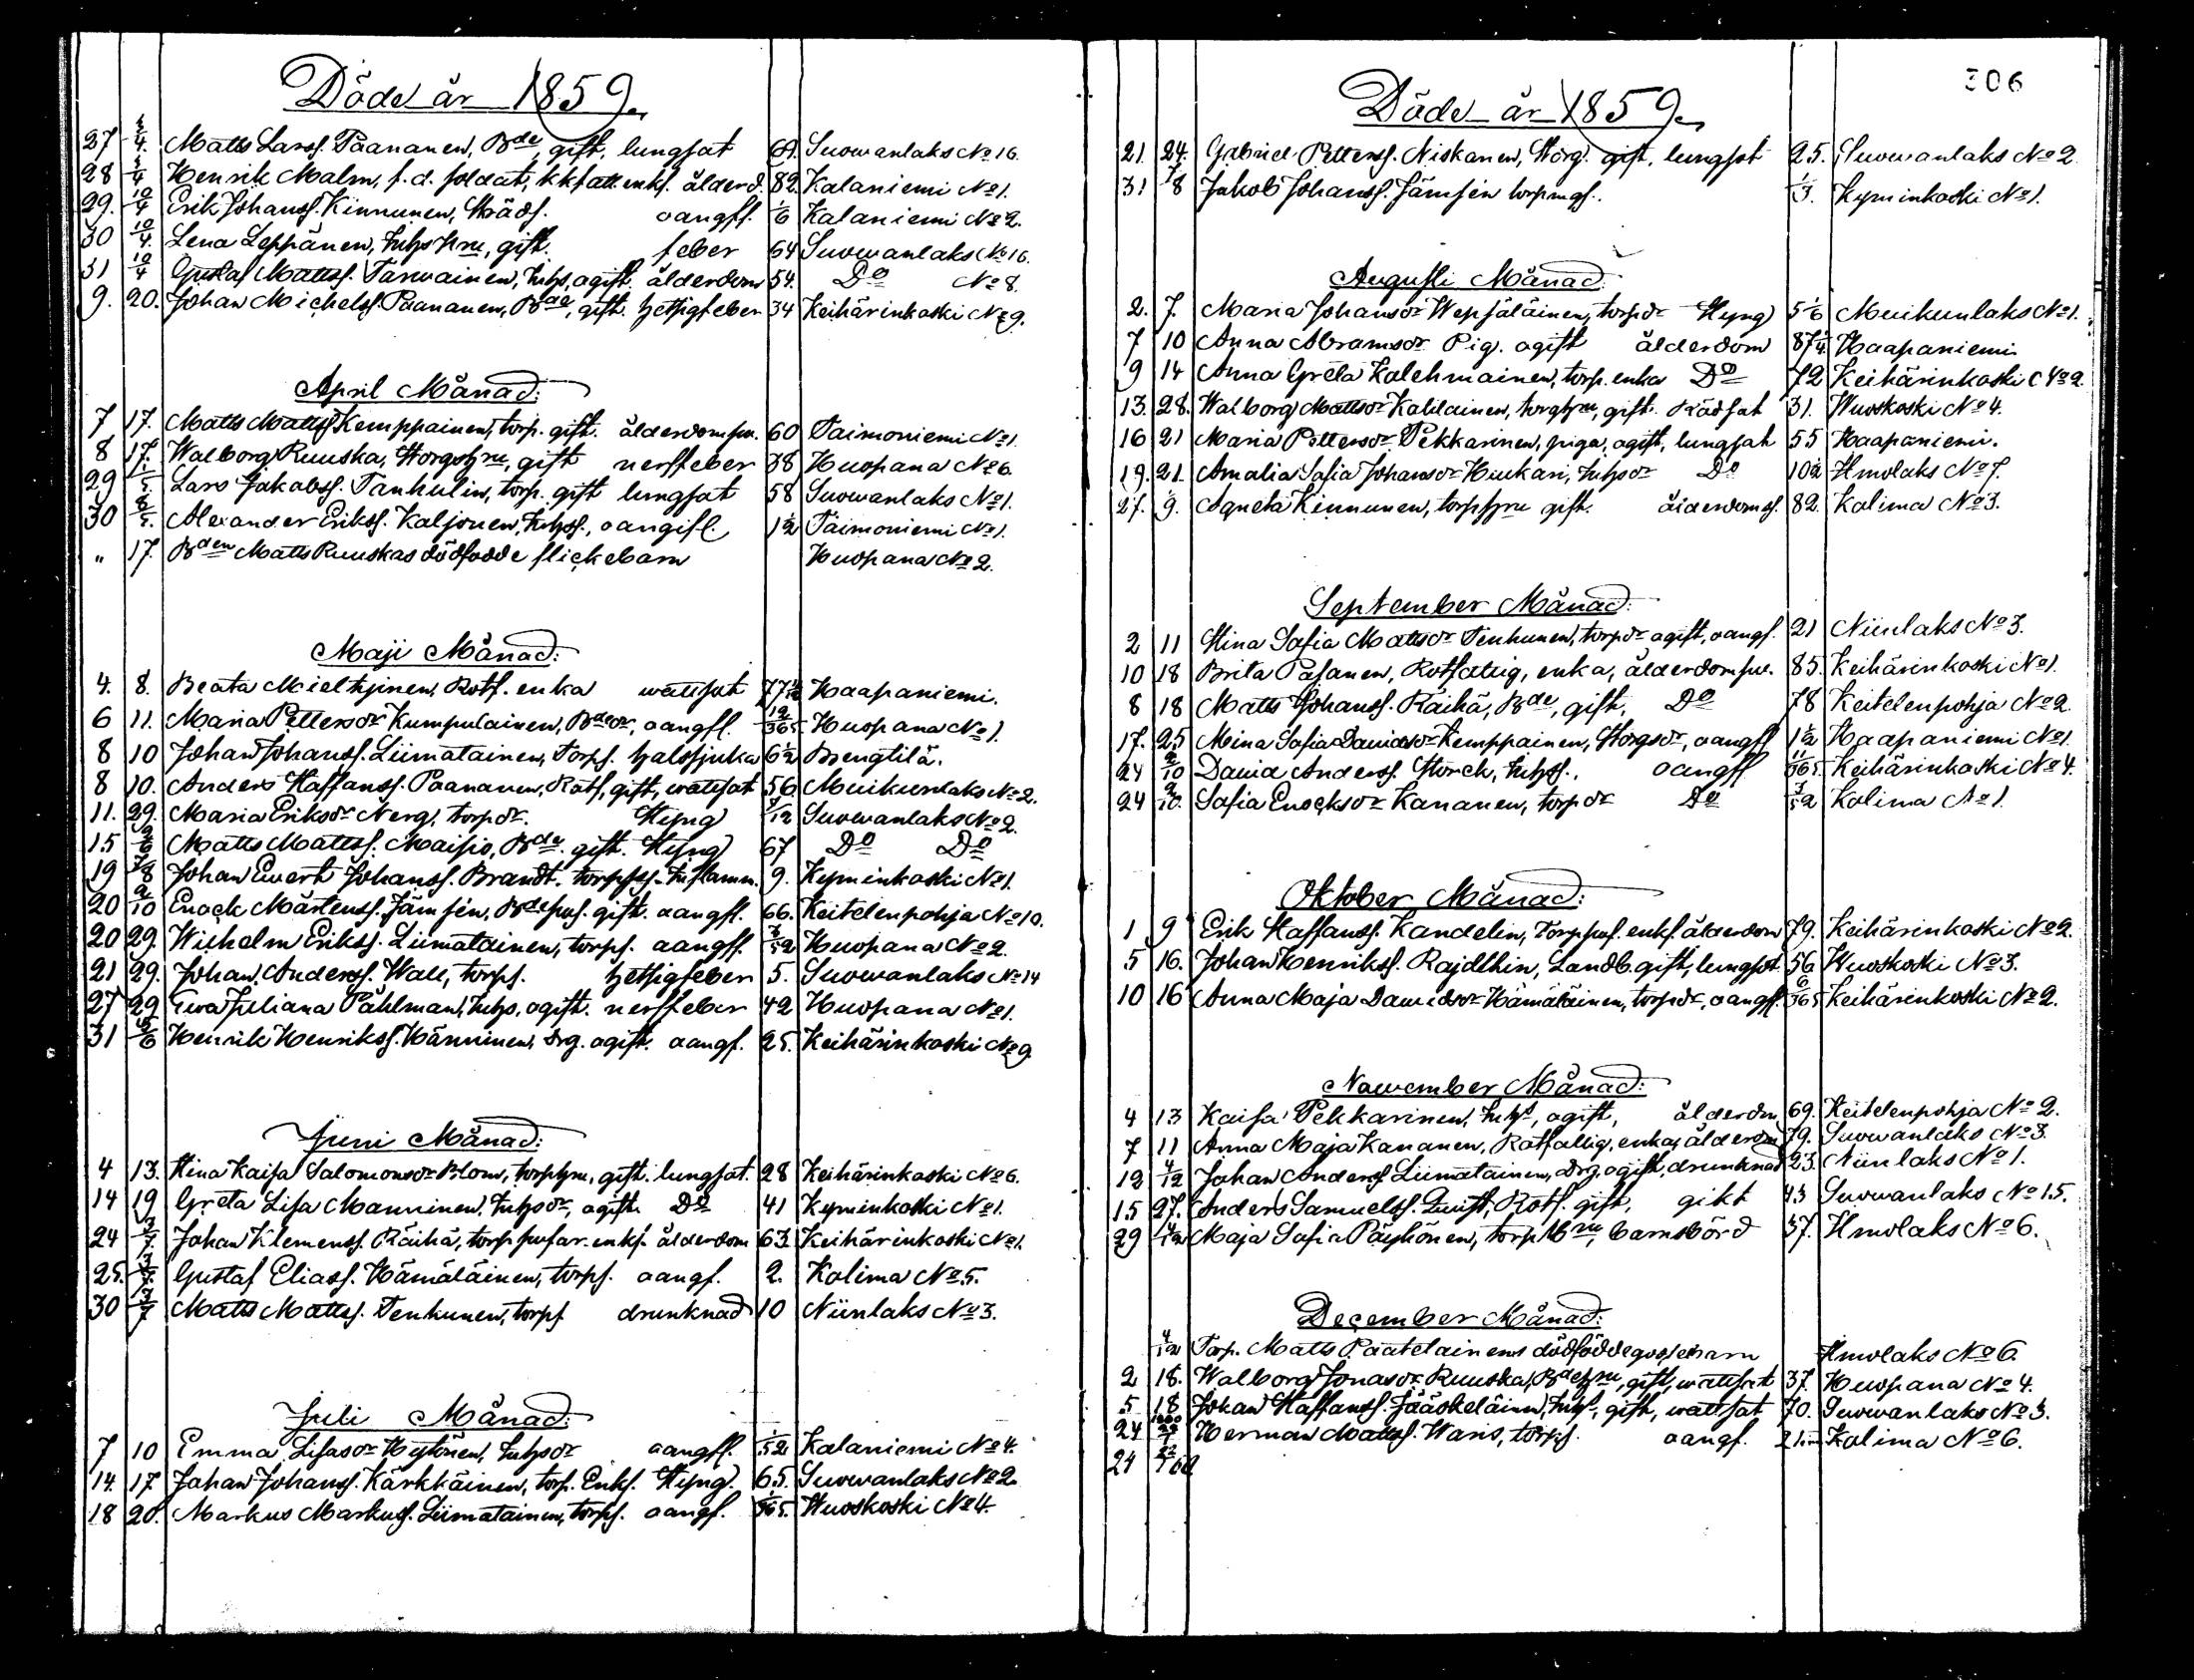 Döde år 1859.
27 3/4. Matts Larss. Paananen, Bde, gift, lungsot 69. Suowanlaks No 16.
28 3/4 Henrik Malm, f.d. soldat, enkl. ålderd. 82. Kalaniemi No 1.
29. 10/4 Erik Johanss. Kinnunen, oangfl. 1/6 Kalaniemi No 2.
30 10/4. Lena Leppänen, Inhs Hru, gift. feber 64 Suowanlaks No 16.
31 10/4 Gustaf Mattss. Tarwainen, Inhs, agift. ålderdom 54. Do No 8.
9. 20. Johan Michelss. Paananen, Bde, gift. hetsigfeber 34 Keihärinkoski No 9.
April Månad:
7 17. Matts Mattss. Kemppainen, torp. gift. ålderdomsw. 60 Taimoniemi No 1.
8 17. Walborg Ruuska, gift nerffeber 38 Huopana No 6.
29 1/5. Lars Jakobss. Tanhulin, torp. gift lungsot 58 Suowanlaks No 1.
30 8/5. Alexander Erikss. Kaljonen, Inhss., oangifl. 1 1/2 Taimoniemi No 1.
" 17. Bden Matts Ruuskas dödfödde flickebarn Huopana No 2.
Maji Månad:
4. 8. Beata Mieltyinen, Rotf. enka wattsot Haapaniemi.
6 11. Maria Pettersdr Kumpulainen, Bdedr, oangfl. 12/365. Huopana No 1.
8 10 Johan Johanss. Liimatainen, Torps. halssjuka 6 1/2 Brengtilä.
8 10. Anders Staffanss. Paananen, Rotf, gift, wattsot 56 Muikunlaks No 2.
11. 29. Maria Eriksdr Nerg, torpdr. Styng Suowanlaks No 2.
15 2/6 Matts Mattss. Maisio, Bde. gift. Styng 67 Do Do
19 7/8 Johan Ewert Johanss. Brandt. Inflamm. 9. Kyminkoski No 1.
20 2/10 Enock Mårtenss. Jämsén, gift. oangfl. 66. Keitelenpohja No 10.
20 29. Wilhelm Erikss. Liimatainen, torps. oangfl. 3/52 Huopana No 2.
21 29. Johan Anderss. Wall, torps. hetsigfeber 5. Suowanlaks No 14
27 29 Ewa Juliana Påhlman, Inhs, ogift. nerffeber 42 Huopana No 1.
31 Henrik Henrikss. Hänninen, drg. ogift. oangf. 25. Keihärinkoski No 9.
Juni Månad:
4 13. Stina Kaisa Salomonsdr Blom, torphru, gift. lungsot. 28 Keihärinkoski No 6.
14 19 Greta Lisa Manninen, Inhsdr, ogift. Do 41 Kyminkoski No 1.
24 3/7 Johan Klemenss. Räihä, enkl. ålderdom 63. Keihärinkoski No 1.
25. Gustaf Eliass. Hämäläinen, torps. oangf. 2. Kolima No 5.
30 13/7 Matts Mattss. Tenhunen, torps drunknad 10 Niinlaks No 3.
Juli Månad:
7 10 Emma Lisasdr Hytönen, Inhsdr oangfl. 1/52 Kalaniemi No 4.
14. 17 Johan Johanss. Kärkkäinen, torp. Enkl. Styng. 65. Suowanlaks No 2
18 20. Markus Markuss. Liimatainen, torps. oangf. 1/365. Wuoskoski No 4.
306
Döde år 1859.
21. 24. Gabriel Petterss. Niskanen, Storg. gift, lungsot 25. Suowanlaks No 2
31 7/8 Jakob Johanss. Jämsén 1/3. Kyminkoski No 1.
Augusti Månad:
2. 7. Maria Johansdr Wepsäläinen, torpdr Styng 5 1/6 Muikunlaks No 1.
7 10 Anna Abramsdr Pig. ogift ålderdom 87 1/4. Haapaniemi
9 14 Anna Greta Kolehmainen, torp. enka Do 72 Keihärinkoski No 2
13. 28. Walborg Mattsdr Kablainen, gift. Rödsot 31. Wuoskoski No 4.
16 21 Maria Pettersdr Pekkarinen, piga, ogift, lungsot 55 Haapaniemi.
19. 21. Amalia Sofia Johansdr Huikari, Inhsdr Do 10 1/2 Ilmolaks No 7.
27. 9. Agneta Kinnunen, gift. ålderdomsf. 82. Kolima No 3.
September Månad:
2 11 Stina Sofia Mattsdr Tenhunen, torpdr ogift, oangf. 21 Niinlaks No 3.
10 18 Brita Pasanen, Rotfattig, enka, ålderdomsw. 85. Keihärinkoski No 1.
8 18 Matts Johanss. Räihä, Bde, gift, Do 78 Keitelenpohja No 2.
17. 25 Mina Sofia Davidsdr Kemppainen, Storgsdr, oangfl 1 1/2 Haapaniemi No 1.
24 2/10 David Anderss. Storck, Inhss., oangfl 11/365. Keihärinkoski No 4.
24 2/10. Sofia Enocksdr Kananen, torpdr Do 3/52 Kolima No 1.
Oktober Månad:
1 9 Erik Staffanss. Kandelin, enkl. ålderdom 79. Keihärinkoski No 2.
5 16. Johan Henrikss. Rajdlhin, Landb. gift, lungsot. 56. Wuoskoski No 3.
10 16 Anna Maja Davidsdr Hämäläinen, torpdr, oangfl. 6/365 Keihärinkoski No 2.
Nowember Månad:
4 13 Kaisa Pekkarinen, Inhs, ogift, ålderdm 69. Keitelenpohja No 2.
7 11 Anna Maja Kananen, Rotfattig, enka, ålderdm 79. Suowanlaks No 3.
12 4/12 Johan Anderss. Liimatainen, drg. ogift, drunknad 23. Niinlaks No 1.
15 27. Anders Samuelss. Quist, Rotf. gift, gikt 43 Suowanlaks No 15.
29 4/12 Maja Sofia Päyhönen, barnsbörd 37. Ilmolaks No 6.
December Månad:
4/12 Torp. Matts Paatelainens dödfödde gossebarn Ilmolaks No 6.
2 18. Walborg Jonasdr Ruuska, Bdehru, gift, wattsot 37. Huopana No 4.
5 18 Johan Staffanss. Jääskeläinen, Inhs, gift, wattsot 70. Suowanlaks No 3.
24 Herman Mattss. Waris, torps. oangf. Kolima No 6.
24